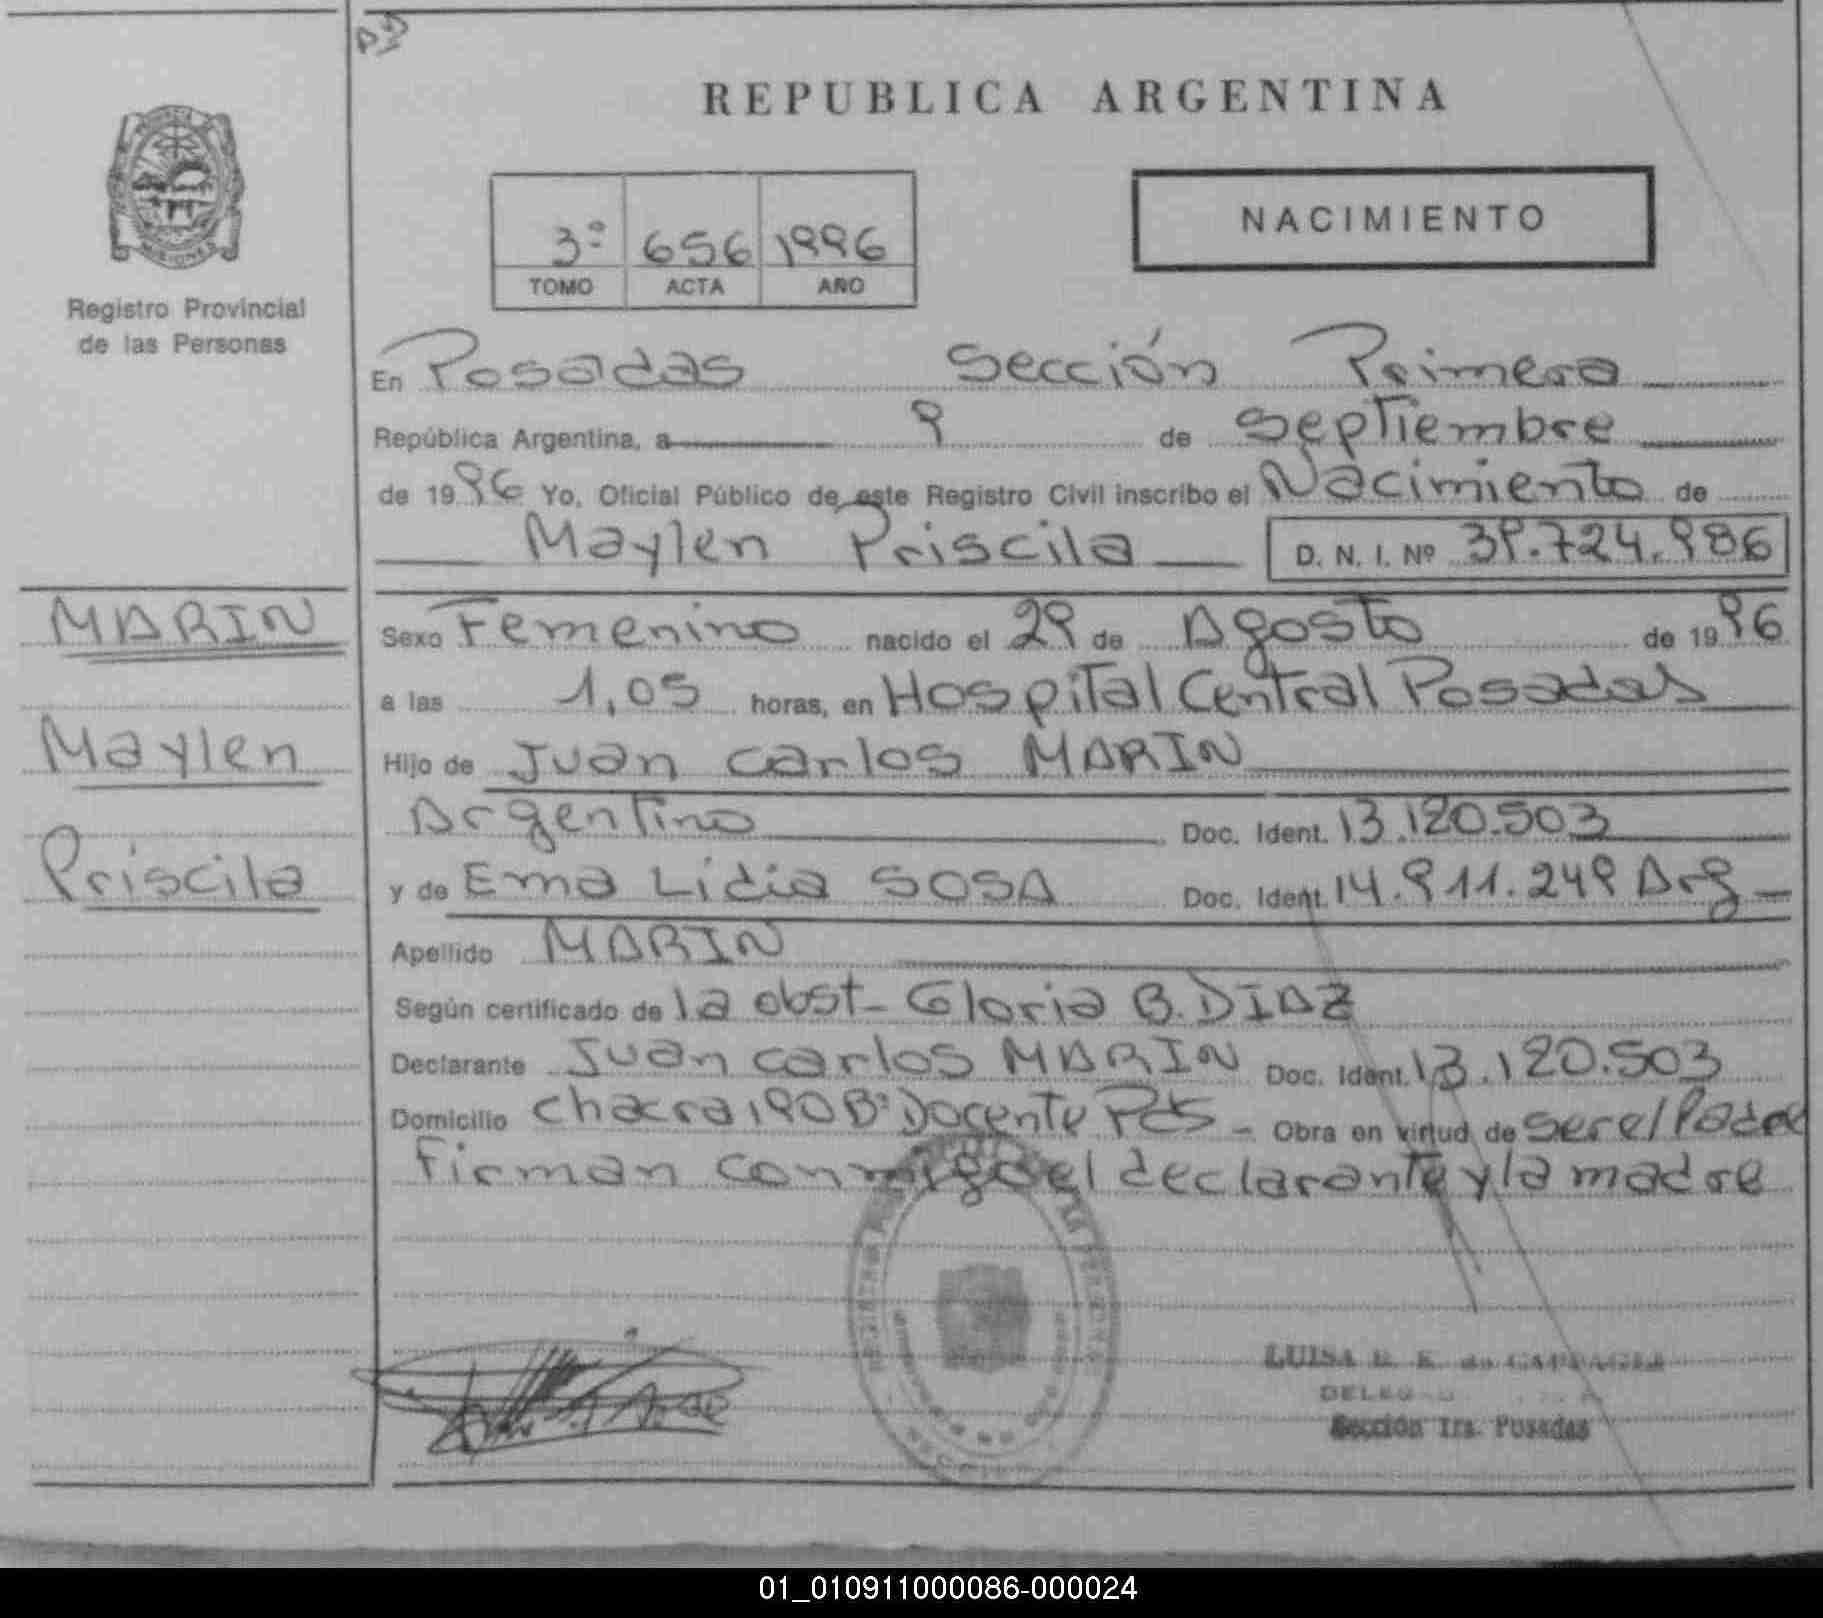 REPUBLICA ARGENTINA
MISIONES
Registro Provincial
de las Personas
3º 656 1996
TOMO ACTA AÑO
NACIMIENTO
En Posadas Sección Primera
República Argentina, a 9 de Septiembre
de 1996 Yo, Oficial Público de este Registro Civil inscribo el Nacimiento de
Maylen Priscila D. N. I. Nº 39.724.986
MARIN
Maylen
Priscila
Sexo Femenino nacido el 29 de Agosto de 1996
a las 1,05 horas, en Hospital Central Posadas
Hijo de Juan Carlos MARIN
Argentino Doc. Ident. 13.120.503
y de Ema Lidia SOSA Doc. Ident. 14.911.249 Arg
Apellido MARIN
Según certificado de la obst- Gloria B. DIAZ
Declarante Juan Carlos MARIN Doc. Ident. 13.120.503
Domicilio Chacra 190 Bº Docente Pdas - Obra en virtud de ser el Padre
Firman conmigo el declarante y la madre
LUISA
Sección 1ra. Posadas
01_010911000086-000024